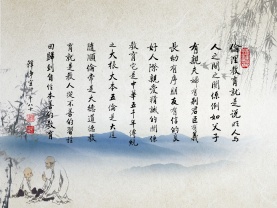 倫理教育就是說明人与
人之間之關係例如父子
有親夫婦有別君臣有義
長幼有序朋友有信的良
好人際親愛精誠的關係
教育它是中華五千年傳統
之大根大本五倫是大道
隨順倫常是大德道德教
育就是教人從不善的習性
回歸到自性本善的教育
釋淨空